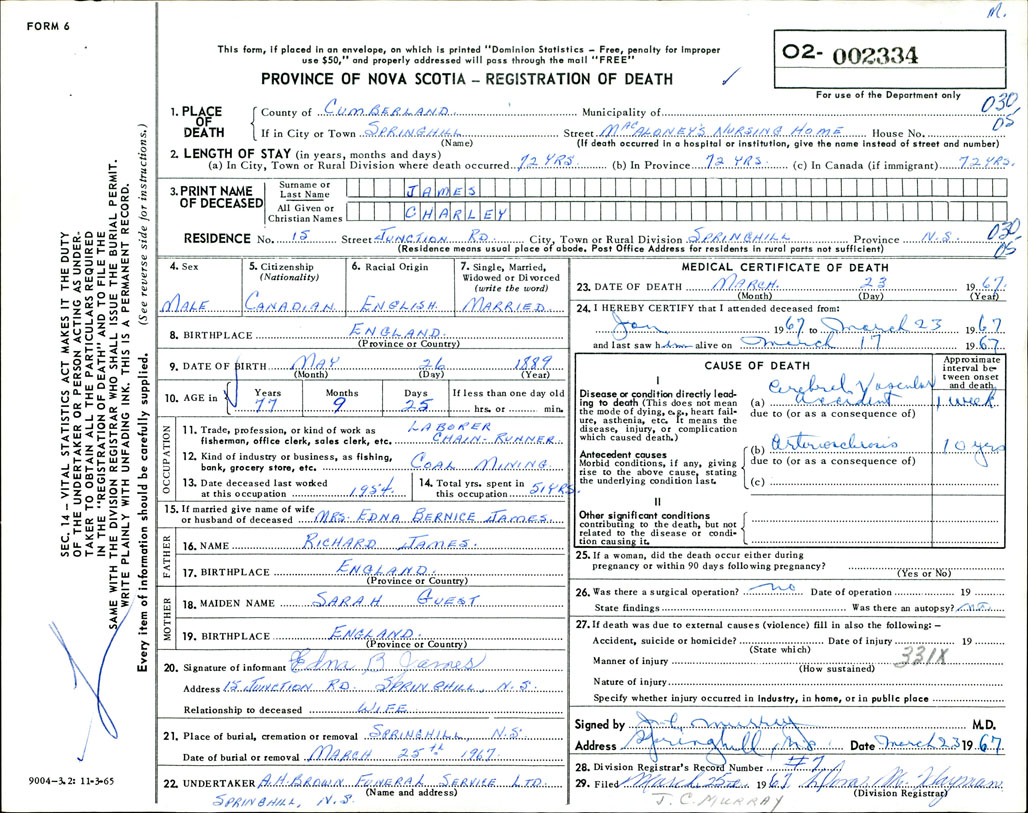 M.
FORM 6
This form, if placed in an envelope, on which is printed "Dominion Statistics – Free, penalty for improper
use $50," and properly addressed will pass through the mail "FREE"
O2- 002334
PROVINCE OF NOVA SCOTIA – REGISTRATION OF DEATH ✓
For use of the Department only
1. PLACE OF DEATH County of CUMBERLAND Municipality of 030
If in City or Town SPRINGHILL Street MacALONEY'S NURSING HOME House No. 05
(Name) (If death occurred in a hospital or institution, give the name instead of street and number)
2. LENGTH OF STAY (in years, months and days)
(a) In City, Town or Rural Division where death occurred 72 YRS. (b) In Province 72 YRS. (c) In Canada (if immigrant) 72 YRS.
3. PRINT NAME OF DECEASED Surname or Last Name JAMES
All Given or Christian Names CHARLEY
RESIDENCE No. 15 Street JUNCTION RD. City, Town or Rural Division SPRINGHILL Province N.S. 030
(Residence means usual place of abode. Post Office Address for residents in rural parts not sufficient) 05
SEC. 14 – VITAL STATISTICS ACT MAKES IT THE DUTY
OF THE UNDERTAKER OR PERSON ACTING AS UNDER-
TAKER TO OBTAIN ALL THE PARTICULARS REQUIRED
IN THE "REGISTRATION OF DEATH" AND TO FILE THE
SAME WITH THE DIVISION REGISTRAR WHO SHALL ISSUE THE BURIAL PERMIT.
WRITE PLAINLY WITH UNFADING INK. THIS IS A PERMANENT RECORD.
Every item of information should be carefully supplied. (See reverse side for instructions.)
4. Sex MALE
5. Citizenship (Nationality) CANADIAN
6. Racial Origin ENGLISH
7. Single, Married, Widowed or Divorced (write the word) MARRIED
8. BIRTHPLACE ENGLAND
(Province or Country)
9. DATE OF BIRTH MAY 26 1889
(Month) (Day) (Year)
10. AGE in Years 77 Months 9 Days 25 If less than one day old
hrs. or min.
OCCUPATION
11. Trade, profession, or kind of work as LABORER
fisherman, office clerk, sales clerk, etc. CHAIN-RUNNER
12. Kind of industry or business, as fishing,
bank, grocery store, etc. COAL MINING
13. Date deceased last worked at this occupation 1954
14. Total yrs. spent in this occupation 51 YRS.
15. If married give name of wife
or husband of deceased MRS. EDNA BERNICE JAMES
FATHER
16. NAME RICHARD JAMES
17. BIRTHPLACE ENGLAND
(Province or Country)
MOTHER
18. MAIDEN NAME SARAH GUEST
19. BIRTHPLACE ENGLAND
(Province or Country)
20. Signature of informant Edna B James
Address 15 JUNCTION RD. SPRINGHILL, N.S.
Relationship to deceased WIFE
21. Place of burial, cremation or removal SPRINGHILL, N.S.
Date of burial or removal MARCH 25th 1967
22. UNDERTAKER A.H. BROWN FUNERAL SERVICE LTD.
(Name and address)
SPRINGHILL, N.S.
9004–3.2: 11-3-65
MEDICAL CERTIFICATE OF DEATH
23. DATE OF DEATH MARCH 23 1967
(Month) (Day) (Year)
24. I HEREBY CERTIFY that I attended deceased from:
Jan 1967 to March 23 1967
and last saw him alive on March 17 1967
CAUSE OF DEATH
Approximate interval be-tween onset and death
I
Disease or condition directly lead-
ing to death (This does not mean
the mode of dying, e.g., heart fail-
ure, asthenia, etc. It means the
disease, injury, or complication
which caused death.)
(a) Cerebral Vascular accident 1 week
due to (or as a consequence of)
Antecedent causes
Morbid conditions, if any, giving
rise to the above cause, stating
the underlying condition last.
(b) Arteriosclerosis 10 yrs
due to (or as a consequence of)
(c)
II
Other significant conditions
contributing to the death, but not
related to the disease or condi-
tion causing it.
25. If a woman, did the death occur either during
pregnancy or within 90 days following pregnancy?
(Yes or No)
26. Was there a surgical operation? no Date of operation 19
State findings Was there an autopsy? no
27. If death was due to external causes (violence) fill in also the following: –
Accident, suicide or homicide? Date of injury 19
(State which)
Manner of injury 331X
(How sustained)
Nature of injury
Specify whether injury occurred in industry, in home, or in public place
Signed by J.C. Murray M.D.
Address Springhill, N.S. Date March 23 1967
28. Division Registrar's Record Number #7
29. Filed March 25th 1967
(Division Registrar)
J. C. MURRAY